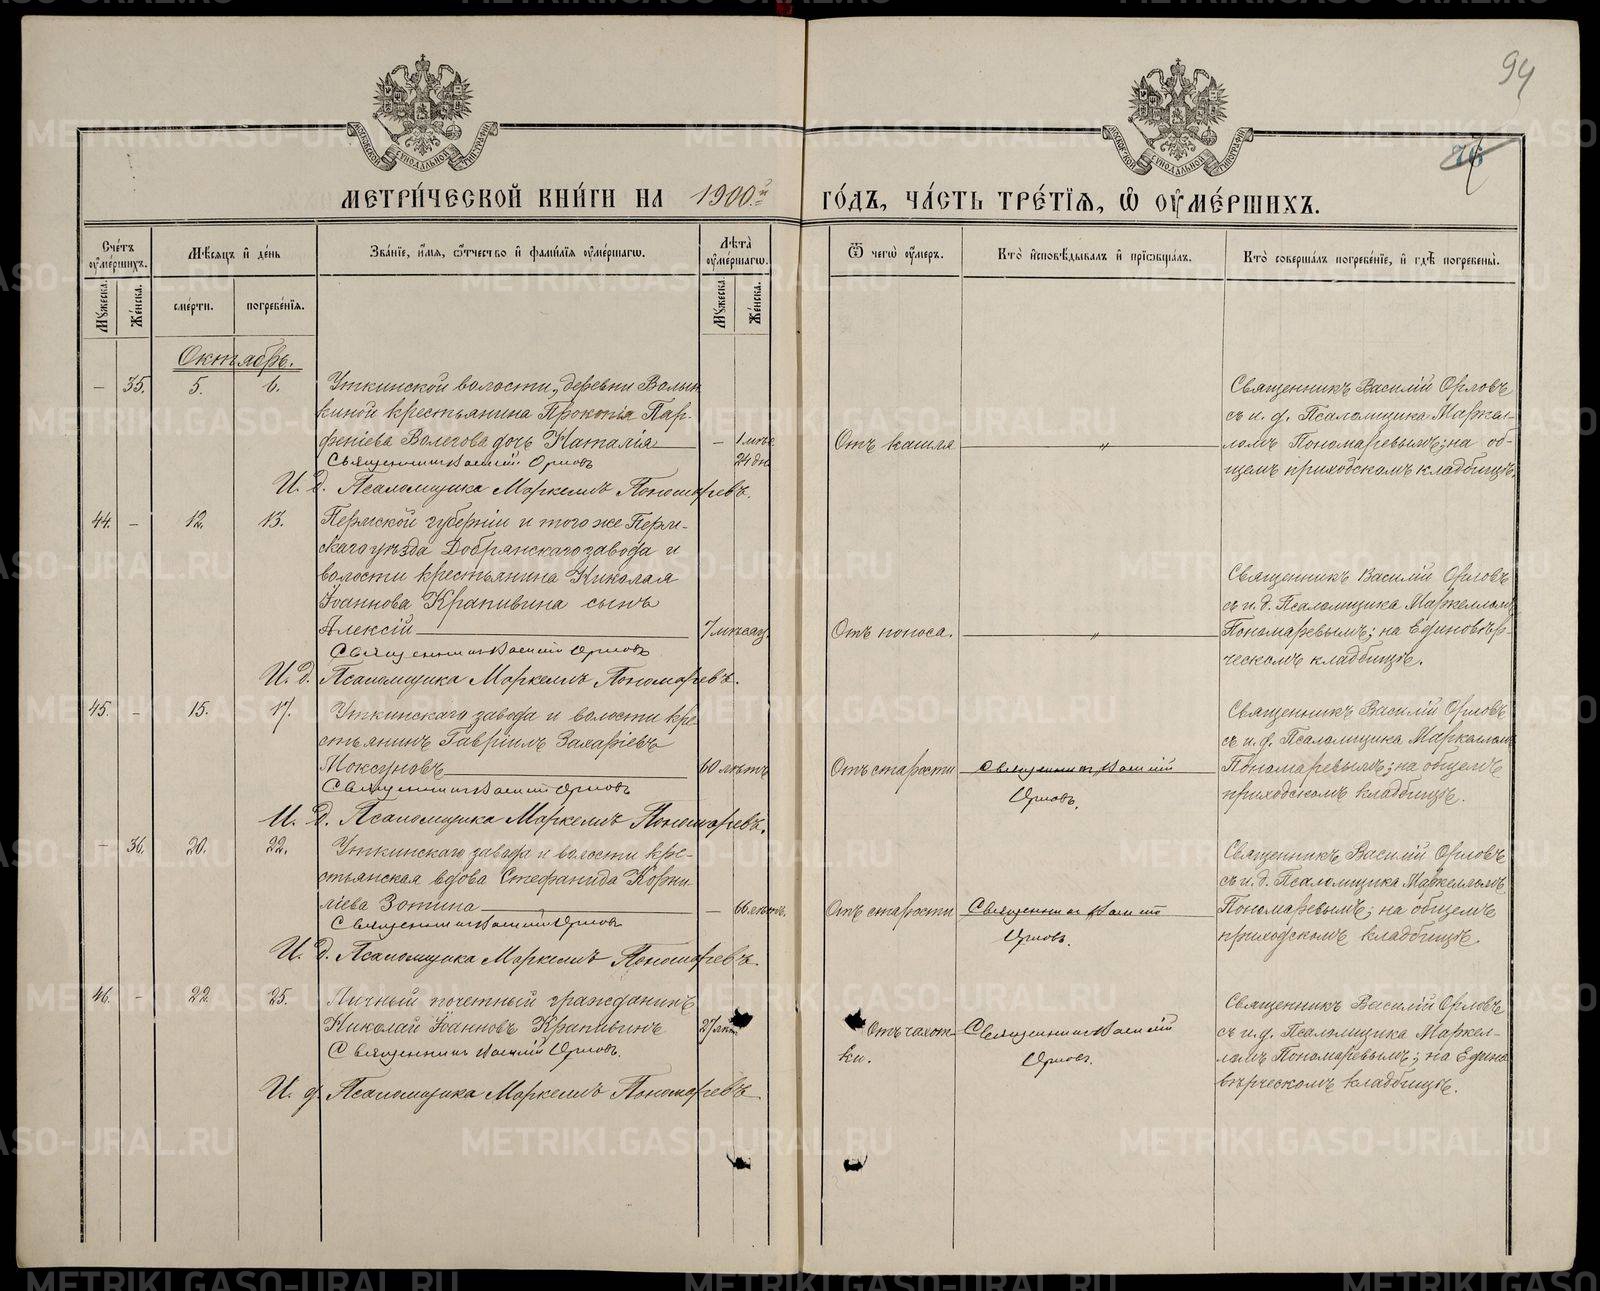 94
76
МЕТРИ́ЧЕСКОЙ КНИ́ГИ НА 1900й ГО́ДЪ, ЧА́СТЬ ТРЕ́ТІѦ, Ѡ ОУМЕ́РШИХЪ.
Сче́тъ оуме́ршихъ.
Мѣ́сяцъ и де́нь
Зва́нїе, и́мя, ѻ́тчество и фами́лїя оуме́ршагѡ.
Лѣ́та оуме́ршагѡ.
Ѿ чегѡ̀ оу́меръ.
Кто̀ и҆сповѣ́дывалъ и прїѡбща́лъ.
Кто̀ соверша́лъ погребе́нїе, и гдѣ̀ погребены̀.
Му́жеска.
Же́нска.
сме́рти.
погребе́нїя.
Му́жеска.
Же́нска.
Октябрь.
— 35. 5. 6.
Уткинской волости, деревни Волын
киной крестьянина Прокопія Пар-
ѳеніева Волегова дочь Наталія — 1 мѣс.
24 дн.
Священникъ Василій Орловъ
И. д. Псаломщика Маркеллъ Пономаревъ.
Отъ кашля „
Священникъ Василій Орловъ
съ и. д. Псаломщика Маркел-
ломъ Пономаревымъ; на об-
щемъ приходскомъ кладбищѣ.
44. — 12. 13.
Пермской губерніи и того же Перм-
скаго уѣзда Добрянскаго завода и
волости крестьянина Николая
Іоаннова Крапивина сынъ
Алексій 7 мѣсяц.
Священникъ Василій Орловъ
И. д. Псаломщика Маркеллъ Пономаревъ.
Отъ поноса. „
Священникъ Василій Орловъ
съ и. д. Псаломщика Маркелломъ
Пономаревымъ; на Единовѣр-
ческомъ кладбищѣ.
45. — 15. 17.
Уткинскаго завода и волости кре
стьянинъ Гавріилъ Захаріевъ
Моксуновъ 60 лѣтъ
Священникъ Василій Орловъ
И. д. Псаломщика Маркеллъ Пономаревъ.
Отъ старости
Священникъ Василій
Орловъ.
Священникъ Василій Орловъ
съ и. д. Псаломщика Маркелломъ
Пономаревымъ; на общемъ
приходскомъ кладбищѣ.
— 36. 20. 22.
Уткинскаго завода и волости кре-
стьянская вдова Стефанида Корни-
ліева Зотина — 66 лѣтъ.
Священникъ Василій Орловъ
И. д. Псаломщика Маркеллъ Пономаревъ.
Отъ старости
Священникъ Василій
Орловъ.
Священникъ Василій Орловъ
съ и. д. Псаломщика Маркелломъ
Пономаревымъ; на общемъ
приходскомъ кладбищѣ.
46. — 22. 25.
Личный почетный гражданинъ
Николай Іоанновъ Крапивинъ 27 лѣт
Священникъ Василій Орловъ.
И. д. Псаломщика Маркеллъ Пономаревъ
Отъ чахот-
ки.
Священникъ Василій
Орловъ.
Священникъ Василій Орловъ
съ и. д. Псаломщика Маркел-
ломъ Пономаревымъ; на Едино
вѣрческомъ кладбищѣ.
METRIKI.GASO-URAL.RU